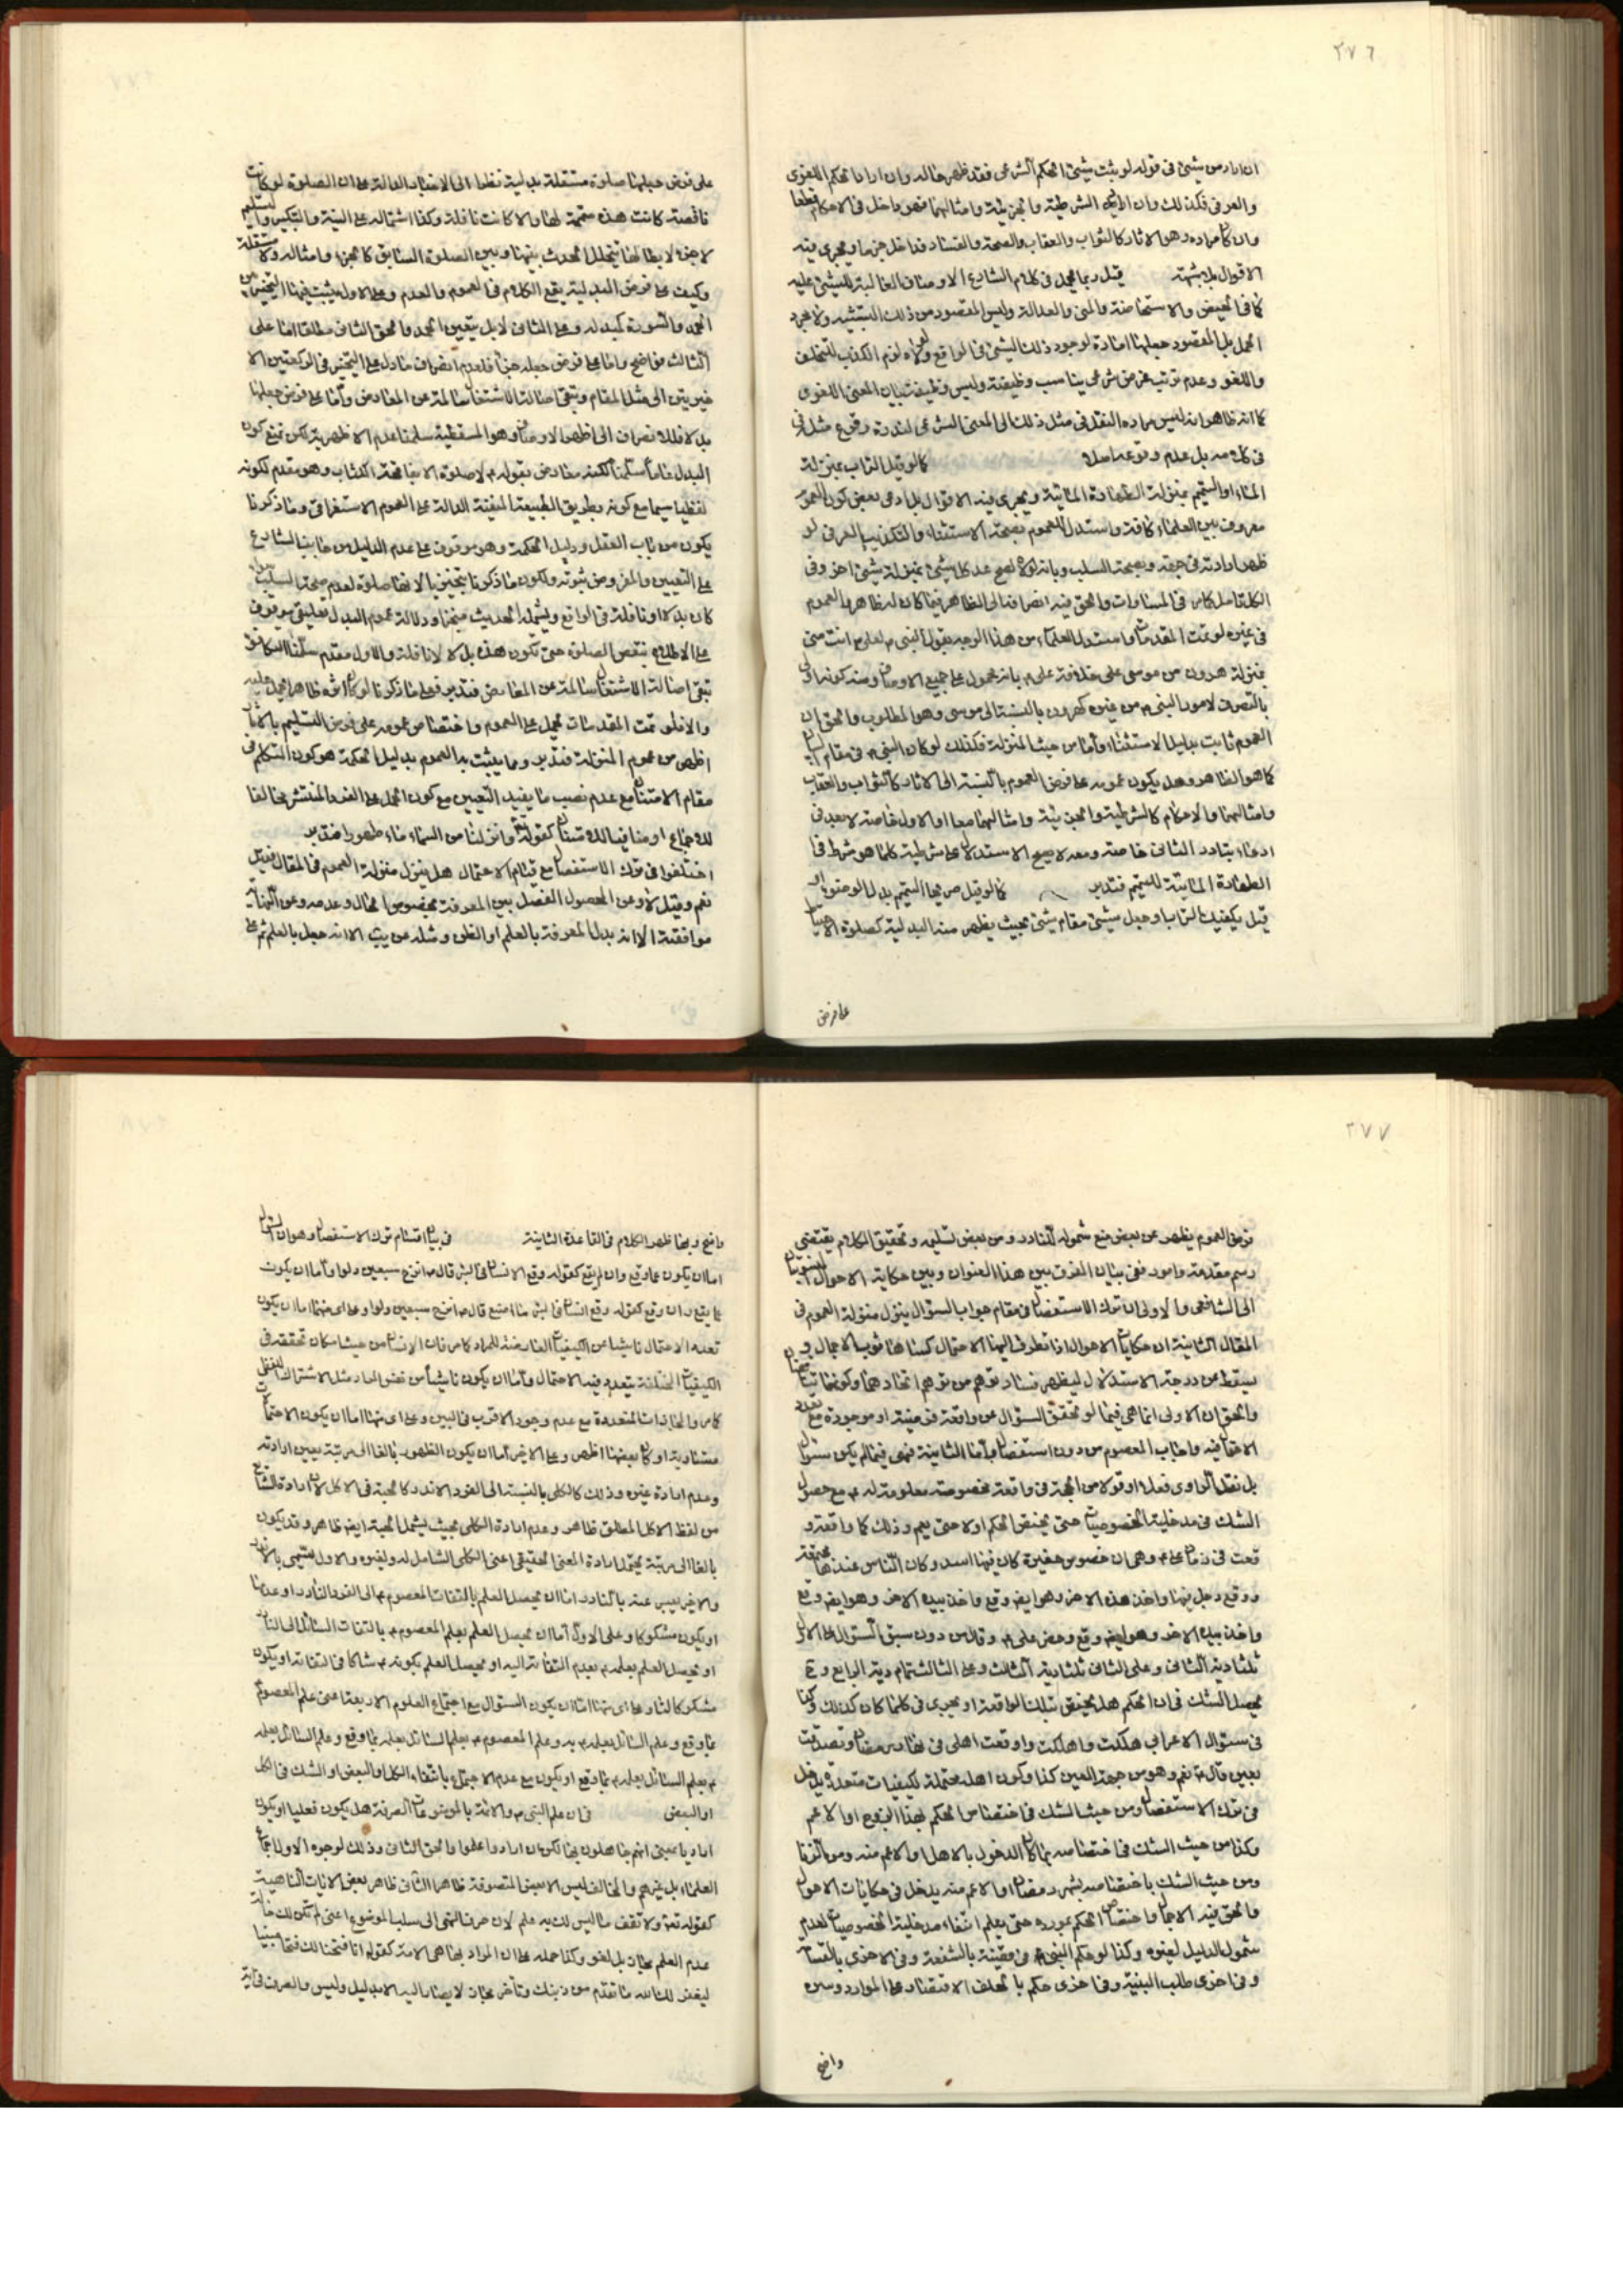 ٢٧٦
ان اراد من شيئ في قوله لو ثبت شيئ الحكم الشرعي فقد ظهر حاله وان اراد الحكم اللغوي
والعرفي فكذلك وان اراد الشرطية والجزئية وامثالهما فهو داخل في الاحكام قطعا
وان كان مراده هو الاثار كالثواب والعقاب والصحة والفساد فداخل جزما ويجري فيه
الاقوال بلا شبهة قيل ربما يحمل في كلام الشارع الاوصاف الغالبة للشيئ عليه
كما في الحيض والاستحاضة والمني والعدالة وليس المقصود من ذلك التشبيه ولا مجرد
الحمل بل المقصود جعلها امارة لوجود ذلك الشيئ في الواقع ولولاه لزم الكذب للتخلف
واللغو وعدم ترتب غرض شرعي يناسب وظيفته وليس وظيفته بيان المعنى اللغوي
كما انه ظاهر انه ليس مراده النقل في مثل ذلك الى المعنى الشرعي لندرة وقوع مثله في
في كلامه بل عدم وقوعه اصلا كما لو قيل التراب بمنزلة
الماء او التيمم بمنزلة الطهارة المائية ويجري فيه الاقوال بل ادعى بعض كون العموم
معروف بين العلماء كافة واستدل للعموم بصحة الاستثناء والتكذيب العرفي لو
ظهر ارادته في جهة وبصحة السلب وبانه لولاه لصح عد كل شيئ بمنزلة شيئ اخر وفي
الكل تامل كما مر في المساوات والحق فيه انصرافه الى الظاهر فيما كان له ظاهر والعموم
في غيره لو تمت المقدمات واستدل العلماء من هذا الوجه بقول النبي ص لعلي ع انت مني
بمنزلة هرون من موسى على خلافة علي ع بانه محمول على جميع الاوصاف ومنه كونه اولى
بالتصرف لامور النبي ص من غيره كهرون بالنسبة الى موسى وهو المطلوب والحق ان
العموم ثابت بدليل الاستثناء واما من حيث المنزلة فكذلك لو كان النبي ص في مقام البيان
كما هو الظاهر وهل يكون عمومه على فرض العموم بالنسبة الى الاثار كالثواب والعقاب
وامثالهما والاحكام كالشرطية والجزئية وامثالهما معا او الاول خاصة لا يبعد في
ادعاء تبادر الثاني خاصة ومعه لا يصح الاستدلال على شرطية كلما هو شرط في
الطهارة المائية للتيمم فتدبر كما لو قيل صح التيمم بدل الوضوء او
قيل يكفيك التراب او جعل شيئ مقام شيئ بحيث يظهر منه البدلية كصلوة الاحتياط
على فرض
على فرض جعلها صلوة مستقلة بدلية نظرا الى الاخبار الدالة على ان الصلوة لو كانت
ناقصة كانت هذه متممة لها والا كانت نافلة وكذا اشتماله على النية والتكبير والتسليم
لا جزء لابطالها بتخلل الحدث بينها وبين الصلوة السابق كالجزء وامثاله ولا مستقلة
وكيف على فرض البدلية يقع الكلام في العموم والعدم وعلى الاول يثبت فيها التخيير بين
الحمد والتسورة كمبدله وعلى الثاني لا بل يتعين الحمد والحق الثاني مطلقا اما على
الثالث فواضح واما على فرض جعله جزء فلعدم انصراف ما دل على التخيير في الركعتين الا
خيرتين الى مثل المقام وتبقى اصالة الاشتغال سالمة عن المعارض واما على فرض جعلها
بدلا فللانصراف الى اظهر الاوصاف وهو المسقطية سلمنا عدم الاظهرية لكن نمنع كون
البدل عاما سلمنا لكنه معارض بقوله ع لا صلوة الا بفاتحة الكتاب وهو مقدم لكونه
لفظيا سيما مع كونه بطريق الطبيعة المنفية الدالة على العموم الاستغراقي وما ذكرنا
يكون من باب العقل ودليل الحكمة وهو موقوف على عدم الدليل من جانب الشارع
على التعيين والمفروض ثبوته ولكون ما ذكرنا بتخيير بالا انها صلوة لعدم صحة السلب سواء
كان بدلا او نافلة في الواقع ويشمله الحديث منجزا ودلالة عموم البدل تعليقي موقوف
على الاطلاع بنقص الصلوة حتى تكون هذه بدلا لا نافلة والاول مقدم سلمنا التكافؤ
تبقى اصالة الاشتغال سالمة عن المعارض فتدبر فعلى ما ذكرنا لو كان اثر ظاهر يحمل عليه
والا فلو تمت المقدمات يحمل على العموم واختصاص عمومه على فرض التسليم بالاثار
اظهر من عموم المنزلة فتدبر ومما يثبت به العموم بدليل الحكمة هو كون التكلم في
مقام الامتنان مع عدم نصب ما يفيد التعيين مع كون الحمل على الفرد المنتشر مخالفا
للاجماع او منافيا للامتنان كقوله تعالى وانزلنا من السماء ماء طهورا فتدبر
اختلفوا في ترك الاستفصال مع قيام الاحتمال هل ينزل منزلة العموم في المقال فقيل
نعم وقيل لا وعن المحصول الفصل بين المعرفة بخصوص الحال وعدمه وعن النهاية
موافقته الا انه بدل المعرفة بالعلم او الظن ومثله عن يب الا انه جعل بالعلم ثم على
٢٧٧
فرض العموم يظهر عن بعض منع شموله للنادر ومن بعض تسليمه وتحقيق الكلام يقتضي
رسم مقدمة وامور ففي بيان الفرق بين هذا العنوان وبين حكاية الاحوال المنسوبتان
الى الشافعي والاولى ان ترك الاستفصال في مقام جواب السؤال ينزل منزلة العموم في
المقال الثانية ان حكايات الاحوال اذا تطرق اليها الاحتمال كساها ثوب الاجمال و
يسقط عن درجة الاستدلال ليظهر فساد توهم من توهم اتحادهما وكونهما تناقضان
والحق ان الاولى انما هي فيما لو تحقق السؤال عن واقعة فرضية او موجودة مع تعدد
الاحتمال فيه واجاب المعصوم من دون استفصال واما الثانية فهي فيما لم يكن سؤال
بل نقل الراوي فعلا او قولا من الحجة في واقعة مخصوصة معلومة له ع مع حصول
الشك في مدخلية الخصوصيات حتى يختص الحكم اولا حتى يعم وذلك كما واقعة و
قعت في زمان علي ع وهي ان خصوص حفيرة كان فيها اسد وكان الناس عندها مجتمعة
ووقع رجل فيها واخذ هذه الاخر وهو ايضا وقع واخذ بيده الاخر وهو ايضا وقع
واخذ بيده الاخر وهو ايضا وقع وحضر علي ع وقال من دون سبق السؤال على الاول
ثلثا دية الثاني وعلى الثاني ثلثا دية الثالث وعلى الثالث تمام دية الرابع وح
يحصل الشك في ان الحكم هل يختص بتلك الواقعة او يجري في كلما كان كذلك وكذا
في سؤال الاعرابي هلكت واهلكت واوقعت اهلي في نهار رمضان وتصديق
بعين قال ع نعم وهو من جهة العين كذا وكون اهله محتملة لكيفيات متعددة يدخل
في ترك الاستفصال ومن حيث الشك في اختصاص الحكم بهذا النوع او الاعم
وكذا من حيث الشك في اختصاصه بما كان الدخول بالاهل او الاعم منه ومن الزنا
ومن حيث الشك باختصاصه بشهر رمضان او الاعم منه يدخل في حكايات الاحوال
والحق فيه الاجمال واختصاص الحكم بمورده حتى يعلم انتفاء مدخلية الخصوصيات لعدم
شمول الدليل لغيره وكذا لو حكم النبي ص في قضية بالشفعة وفي الاخرى بالقسامة
وفي اخرى طلب البينة وفي اخرى حكم بالحلف الاقتصار على الموارد وسره
واضح
واضح وبها ظهر الكلام في القاعدة الثانية في بيان اقسام ترك الاستفصال وهو ان السؤال
اما ان يكون عما وقع وان لم يقع كقوله وقع الانسان في البئر قال ع انزح سبعين دلوا واما ان يكون
كما مر والمجازات المتعددة مع عدم وجود الاقرب في البين وعلى اي منها اما ان يكون الاحتمالات
متساوية او كان بعضها اظهر وعلى الاخير اما ان يكون الظهور بالغا الى مرتبة يعين ارادته
وعدم ارادة غيره وذلك كالكلي بالنسبة الى الفرد الاندر كالحبة في الاكل
من لفظ الاكل المطلق ظاهر وعدم ارادة الكلي بحيث يشمل الحبة ايضا ظاهر وقد يكون
بالغا الى مرتبة يحتمل ارادة المعنى الحقيقي اعني الكلي الشامل له ولغيره والاول يسمى بالاندر
والاخير يعبر عنه بالنادر اما ان يحصل العلم بالتفات المعصوم ع الى الفرد النادر او عدمها
او يكون مشكوكا وعلى الاول اما ان يحصل العلم بعلم المعصوم ع بالتفات السائل الى النادر
او يحصل العلم بعلمه ع بعدم التفاته اليه او يحصل العلم بكونه ع شاكا في التفاته او يكون
مشكوكا لنا وعلى اي منها اما ان يكون السؤال مع اجتماع العلوم الاربعة اعني علم المعصوم
بما وقع وعلم السائل بعلمه ع به وعلم المعصوم ع بعلم السائل بعلمه بما وقع وعلم السائل بعلمه
ع بعلم السائل بعلمه ع بما وقع او يكون مع عدم الاجتماع بانتفاء الكل او البعض او الشك في الكل
او البعض في ان علم النبي ص والائمة بالموضوعات الصرفة هل يكون فعليا او يكون
اراديا بمعنى انهم جاهلون بها لكن ان ارادوا علموا والحق الثاني وذلك لوجوه الاول اجماع
العلماء بل غيرهم والمخالف ليس الا بعض المتصوفة ظاهرا الثاني ظاهر بعض الايات الناهية
كقوله تعالى ولا تقف ما ليس لك به علم لان صرف النهي الى سلب الموضوع اعني لم تكن لك حالة
عدم العلم مجاز بل لغو وكذا حمله على ان المراد بها هي الامة كقوله انا فتحنا لك فتحا مبينا
ليغفر لك الله ما تقدم من ذنبك وتأخر مجاز لا يصار اليه الا بدليل وليس والصرف في آية